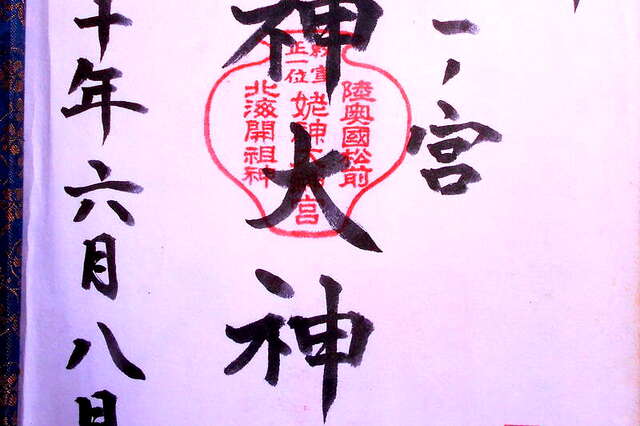 一ノ宮
神大神
十年六月八日
陸奥國松前
正一位
姥神大
宮
北海開祖神